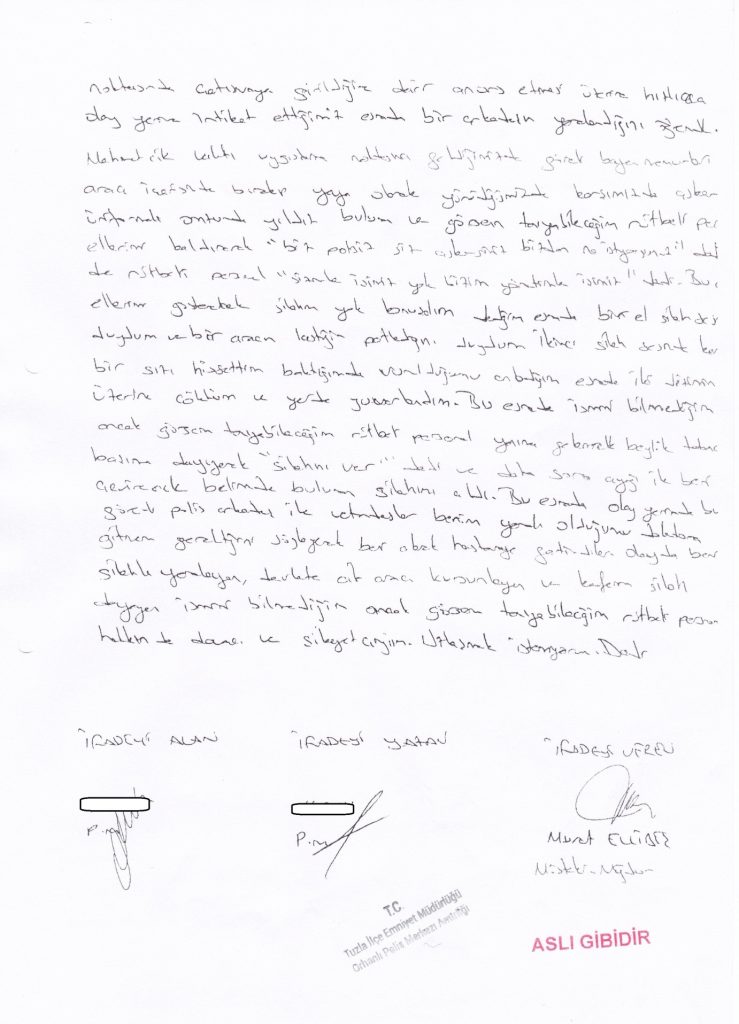 noktasında çatışmaya girildiğine dair anons etmesi üzerine hızlıca
olay yerine intikal ettiğimiz esnada bir arkadaşın yaralandığını öğrendik.
Mehmetcik vakfı uygulama noktasına geldiğimizde görek
aracı içerisinde bırakıp yaya olarak yürüdüğümüzde karşımızda asker
üniformalı omzunda yıldız bulunan ve görsem tanıyabileceğim rütbeli per
ellerimi kaldırarak "biz polisiz siz askersiniz bizden ne istiyorsunuz" dedi
de rütbeli personel "sizinle işimiz yok bizim yönetimle işimiz" dedi. Bu
ellerimi göstererek silahım yok konuşalım dediğim esnada bir el silah sesi
duydum ve bir aracın lastiğin patladığını duydum ikinci silah sesinde
bir sızı hissettim baktığımda vurulduğumu anladığım esnada iki dizimin
üzerine çöktüm ve yerde yuvarlandım. Bu esnada ismini bilmediğim
ancak görsem tanıyabileceğim rütbeli personel yanıma gelerek beylik
başıma dayayarak "silahını ver" dedi ve daha sonra ayağı ile beni
çevirerek belimde bulunan silahımı aldı. Bu esnada olay yerinde bu
görevli polis arkadaş ile vatandaşlar benim yaralı olduğumu doktora
gitmem gerektiğini söyleyerek beni alarak hastaneye götürdüler olayda beni
silahla yaralayan, devlete ait aracı kurşunlayan ve kafama silah
dayayan ismini bilmediğim ancak görsem tanıyabileceğim rütbeli personel
hakkında davacı ve şikayetçiyim. Uzlaşmak istemiyorum. Dedi
İFADEYİ ALAN İFADEYİ YAZAN İFADEYİ VEREN
P.m P.m Murat ELLİBEŞ
Müşteki-Mağdur
T.C.
Tuzla İlçe Emniyet Müdürlüğü
Orhanlı Polis Merkezi Amirliği
ASLI GİBİDİR